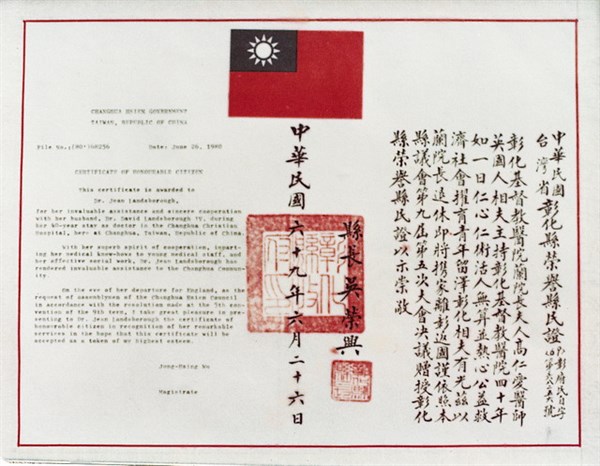 CHANGHUA HSIEN GOVERNMENT
TAIWAN, REPUBLIC OF CHINA
File no.: Date: June 26, 1980
CERTIFICATE OF HONOURABLE CITIZEN
This certificate is awarded to
Dr. Jean Landsborough,
for her invaluable assistance and sincere cooperation
with her husband, Dr. David Landsborough IV, during
her 40-year stay as doctor in the Changhua Christian
Hospital, here at Changhua, Taiwan, Republic of China.
With her superb spirit of cooperation, impart-
ing her medical know-hows to young medical staff, and
her affective social work, Dr. Jean Landsborough has
rendered invaluable assistance to the Changhua Commu-
nity
On the eve of her departure for England, as the
request of assemblymen of the Changhua Hsien Council
in accordance with the resolution made at the 5th con-
vention of the 9th term, I take great pleasure in pre-
senting to Dr. Jean Landsborough the certificate of
honourable citizen in recognition of her remarkable
services in the hope that this certificate will be
accepted as a token of my highest esteem.
Jung-Hsing Wu
Magistrate
中華民國
台灣省彰化縣榮譽縣民證
彰府民自字
彰化基督教醫院蘭院長夫人高仁愛醫師
英國人相夫主持彰化基督教醫院四十年
如一日仁心仁術活人無算並熱心公益救
濟社會擢育青年留澤彰化相夫有光茲以
蘭院長退休即將携家離彰返國謹依照本
縣議會第九屆第五次大會決議贈授彰化
縣榮譽縣民證以示崇敬
縣長吳榮興
中華民國六十九年六月二十六日